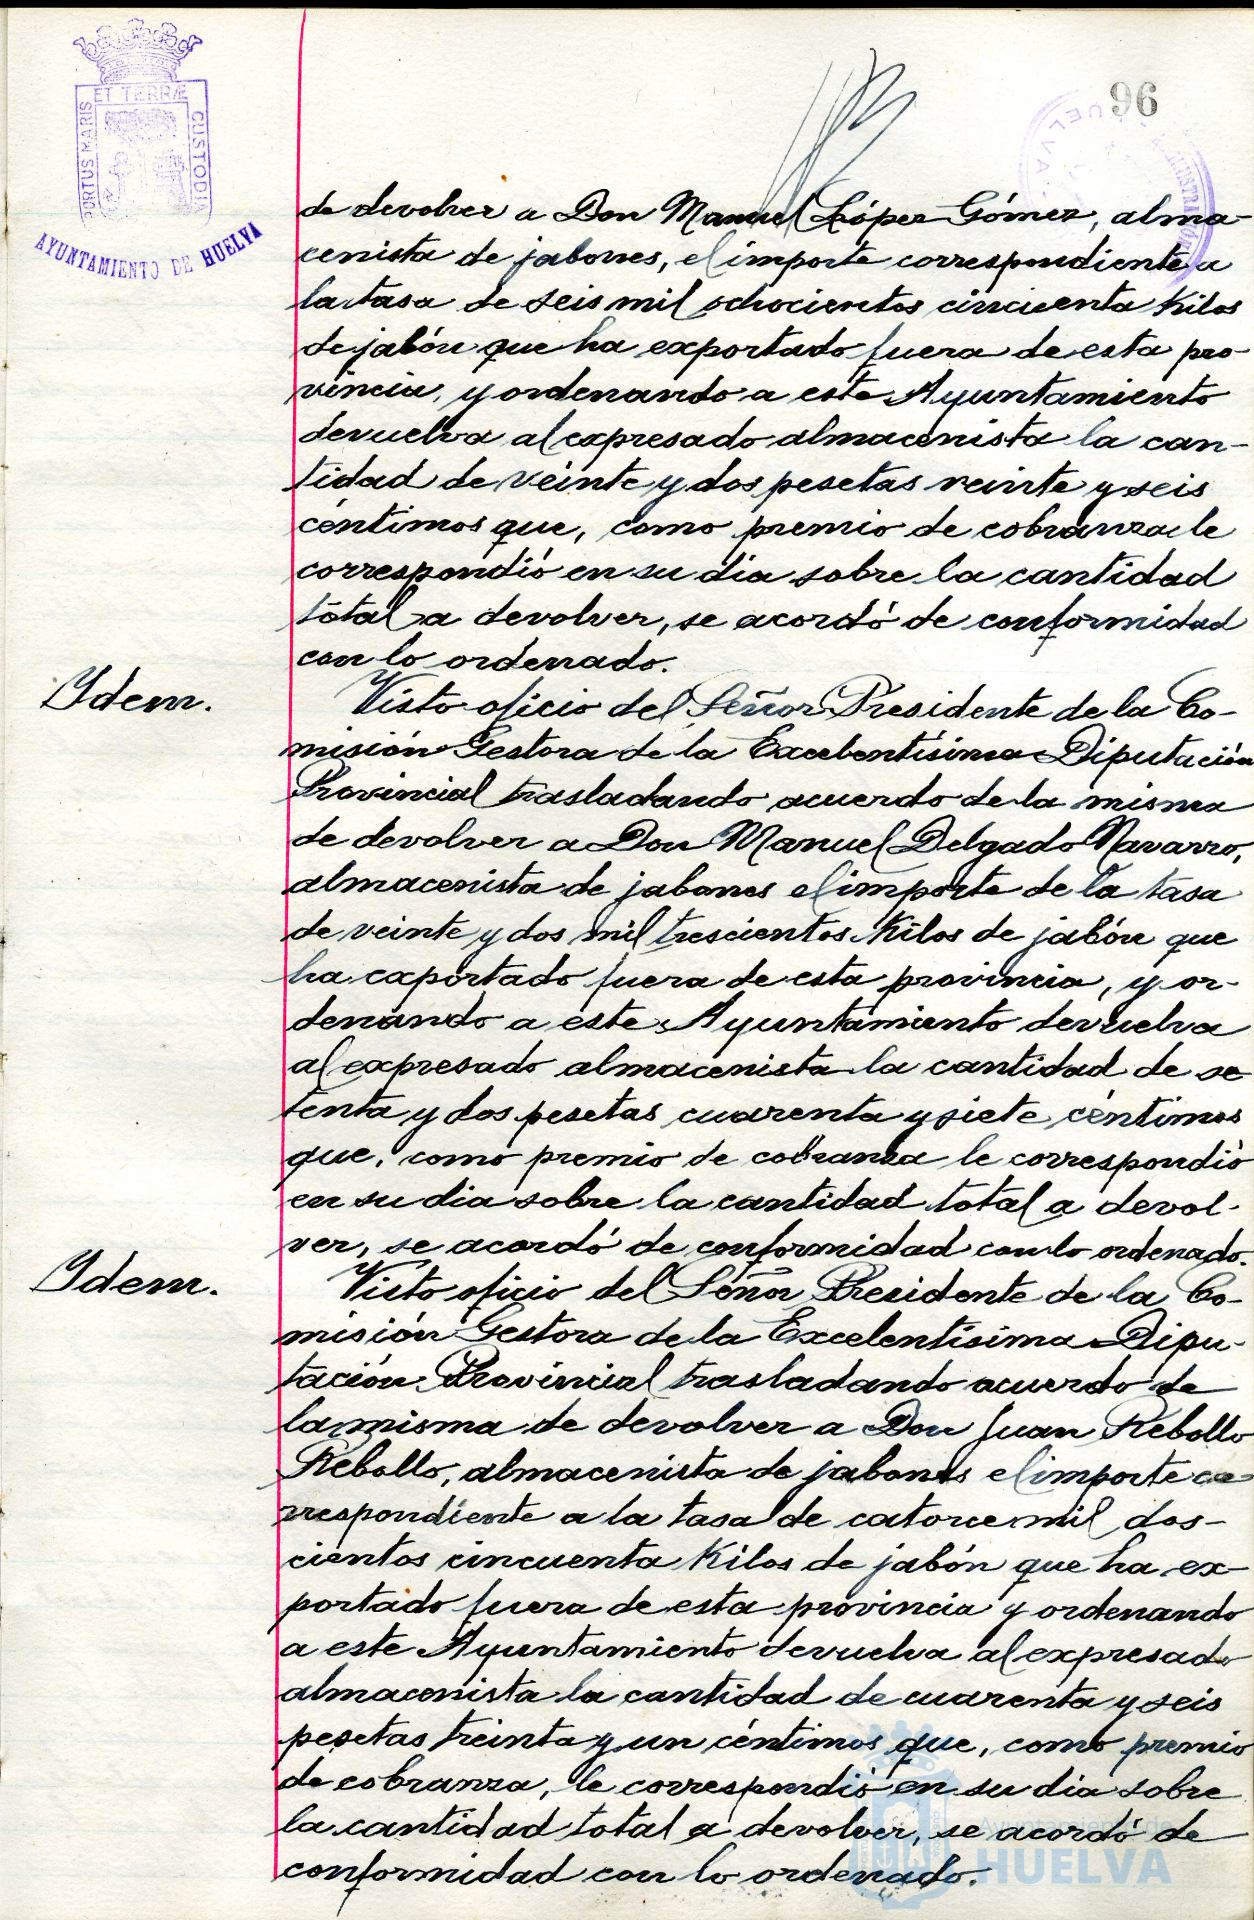 96
PORTUS MARIS ET TERRÆ CUSTODIA
AYUNTAMIENTO DE HUELVA
de devolver a Don Manuel López Gómez, alma-
cenista de jabones, el importe correspondiente a
la tasa de seis mil ochocientos cincuenta Kilos
de jabón que ha exportado fuera de esta pro-
vincia, y ordenando a este Ayuntamiento
devuelva al expresado almacenista la can-
tidad de veinte y dos pesetas veinte y seis
céntimos que, como premio de cobranza le
correspondió en su dia sobre la cantidad
total a devolver, se acordó de conformidad
con lo ordenado.
Idem.
Visto oficio del Señor Presidente de la Co-
misión Gestora de la Excelentísima Diputación
Provincial trasladando acuerdo de la misma
de devolver a Don Manuel Delgado Navarro,
almacenista de jabones el importe de la tasa
de veinte y dos mil trescientos Kilos de jabón que
ha exportado fuera de esta provincia, y or-
denando a este Ayuntamiento devuelva
al expresado almacenista la cantidad de se
tenta y dos pesetas cuarenta y siete céntimos
que, como premio de cobranza le correspondió
en su dia sobre la cantidad total a devol-
ver, se acordó de conformidad con lo ordenado.
Idem.
Visto oficio del Señor Presidente de la Co-
misión Gestora de la Excelentísima Dipu-
tación Provincial trasladando acuerdo de
la misma de devolver a Don Juan Rebollo
Rebollo, almacenista de jabones el importe co
rrespondiente a la tasa de catorce mil dos-
cientos cincuenta Kilos de jabón que ha ex-
portado fuera de esta provincia y ordenando
a este Ayuntamiento devuelva al expresado
almacenista la cantidad de cuarenta y seis
pesetas treinta y un céntimos que, como premio
de cobranza, le correspondió en su dia sobre
la cantidad total a devolver, se acordó de
conformidad con lo ordenado.
Ayuntamiento de
HUELVA